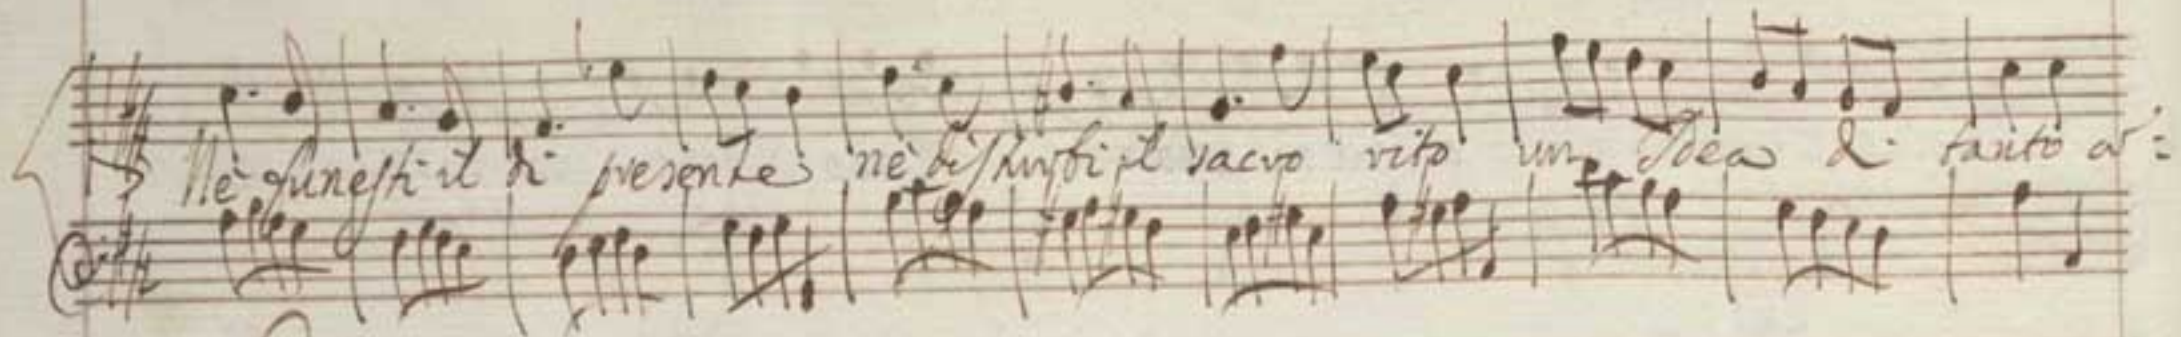 Nè funesti il dì presente nè disturbi il sacro rito un Idea di tanto ar: